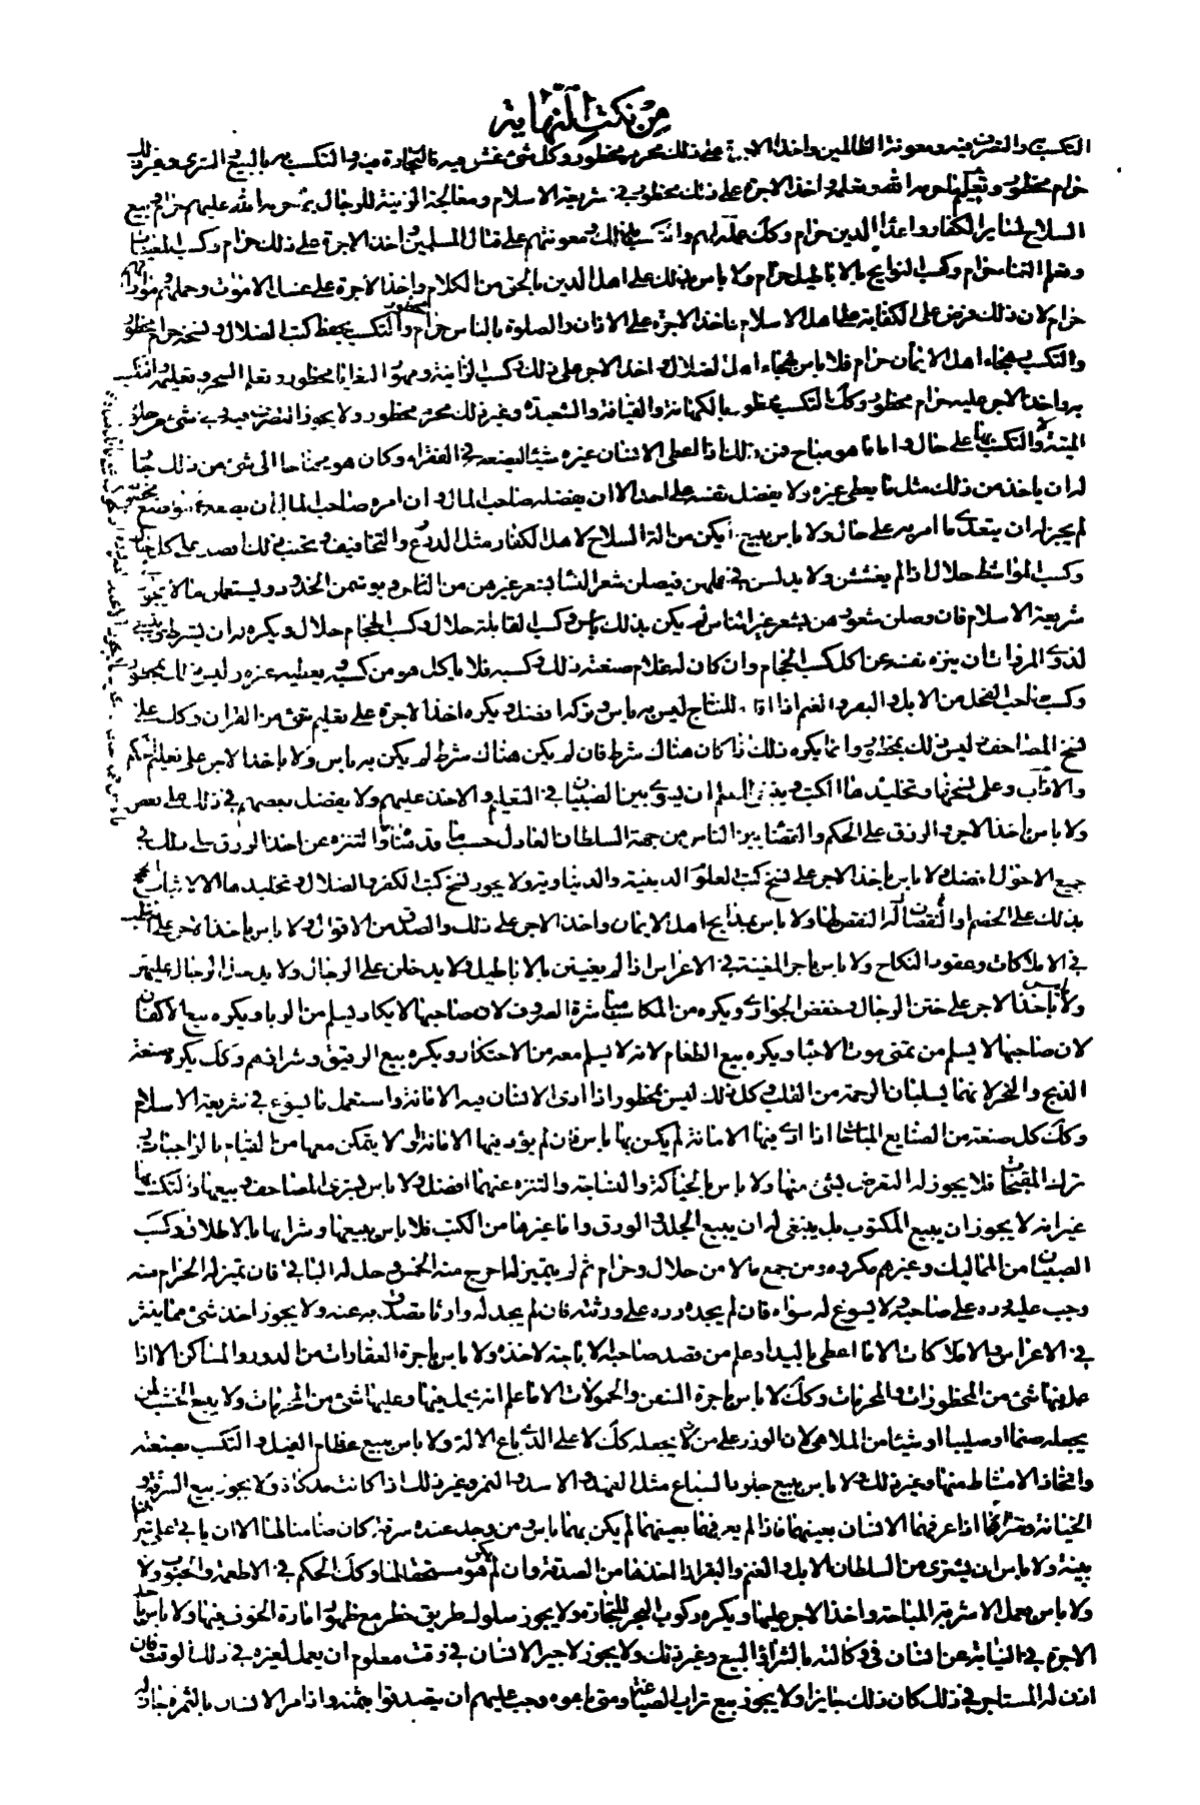 من نكت النهاية
التكسب والتصرف فيه ومعونة الظالمين واخذ الاجرة على ذلك محرم محظور وكل شئ غش فيه فالتجارة فيه والتكسب به بالبيع والشرى وغير ذلك
حرام محظور وتعليم ما حرمه الله وتعلمه واخذ الاجرة على ذلك محظور في شريعة الاسلام ومعالجة الزينة للرجال بما حرمه الله عليهم حرام وبيع
السلاح لسائر الكفار واعداء الدين حرام وكذلك عمله لهم والتكسب بذلك ومعونتهم على قتال المسلمين واخذ الاجرة على ذلك حرام وكسب المغنيات
وتعلم الغناء حرام وكسب النوائح بالاباطيل حرام ولا باس بذلك على اهل الدين بالحق من الكلام واخذ الاجرة على غسل الاموات وحملهم ومواراتهم
حرام لان ذلك فرض على الكفاية على اهل الاسلام واخذ الاجرة على الاذان والصلوة بالناس حرام والتكسب بحفظ كتب الضلال ونسخه حرام محظور
والتكسب بهجاء اهل الايمان حرام فلا باس بهجاء اهل الضلال واخذ الاجر على ذلك وكسب الزانية ومهور البغايا محظور وتعلم السحر وتعليمه والتكسب
به واخذ الاجر عليه حرام محظور وكذلك التكسب محظور بالكهانة والقيافة والشعبذة وغير ذلك محرم محظور ولا يجوز التصرف في شئ من جلود
الميتة ولا التكسب بها على حال واما ما هو مباح فمن ذلك اذا اعطى الانسان غيره شيئا ليضعه في الفقراء وكان هو محتاجا الى شئ من ذلك جاز
له ان ياخذ من ذلك مثل ما يعطى غيره ولا يفضل نفسه على احد الا ان يفضله صاحب المال وان امره صاحب المال بان يضعه في مواضع مخصوصة
لم يجز له ان يتعدى ما امر به على حال ولا باس ببيع ما يكن من الة السلاح لاهل الكفار مثل الدروع والتجافيف وتجنب ذلك افضل على كل حال
وكسب المواشط حلال اذا لم يغششن ولا يدلسن في عملهن فيصلن شعر النساء بشعر غيرهن من الناس ويوشمن الخدود ويستعملن ما لا يجوز في
شريعة الاسلام فان وصلن شعورهن بشعر غير الناس لم يكن بذلك باس وكسب القابلة حلال وكسب الحجام حلال ويكره له ان يشترط وينبغي
لذوى المروات ان ينزه نفسه عن اكل كسب الحجام وان كان له غلام صنعته ذلك وكسبه فلا ياكل هو من كسبه ويعطيه غيره وليس ذلك بمحظور
وكسب صاحب الفحل من الابل والبقر والغنم اذا اقامه للنتاج ليس به باس وتركه افضل ويكره اخذ الاجرة على تعليم شئ من القران وكذلك على
نسخ المصاحف وليس ذلك بمحظور وانما يكره ذلك اذا كان هناك شرط فان لم يكن هناك شرط لم يكن به باس ولا باس باخذ الاجر على تعليم الحكم
والاداب وعلى نسخها وتخليدها الكتب وينبغي للمعلم ان يسوى بين الصبيان في التعليم والاخذ عليهم ولا يفضل بعضهم في ذلك على بعض
ولا باس باخذ الاجر والرزق على الحكم والقضاء بين الناس من جهة السلطان العادل حسب ما قدمناه والتنزه عن اخذ الرزق على ذلك في
جميع الاحوال افضل ولا باس باخذ الاجر على نسخ كتب العلوم الدينية والدنياوية ولا يجوز نسخ كتب الكفر والضلال وتخليدها الا لاثبات الحجج
بذلك على الخصم والنقض له ولا باس بمدايح اهل الايمان واخذ الاجر على ذلك والصدق من الاقوال ولا باس باخذ الاجر على الخطب
في الاملاكات وعقود النكاح ولا باس باجر المغنية في الاعراس اذا لم يغنين بالاباطيل ولا يدخلن على الرجال ولا يدخل الرجال عليهن
ولا باس باخذ الاجر على ختن الرجال وخفض الجوارى ويكره من المكاسب مباشرة الصروف لان صاحبها لا يكاد يسلم من الربا ويكره بيع الاكفان
لان صاحبها لا يسلم من تمنى موت الاحياء ويكره بيع الطعام لانه لا يسلم معه من الاحتكار ويكره بيع الرقيق وشرائهم وكذلك يكره صنعة
الذبح والنحر لانهما يسلبان الرحمة من القلب وكل ذلك ليس بمحظور اذا ادى الانسان فيه الامانة واستعمل ما يسوغ في شريعة الاسلام
وكذلك كل صنعة من الصنايع المباحة اذا ادى فيها الامانة لم يكن بها باس فان لم يؤد فيها الامانة او لا يتمكن معها من القيام بالواجبات
وترك المقبحات فلا يجوز له التعرض لشئ منها ولا باس بالحياكة والنساجة والتنزه عنهما افضل ولا باس بشرى المصاحف وبيعها والتكسب بها
غير انه لا يجوز ان يبيع المكتوب بل ينبغي له ان يبيع الجلد والورق واما غيرها من الكتب فلا باس ببيعها وشرايها بالاطلاق وكسب
الصبيان من المماليك وغيرهم مكروه ومن جمع مالا من حلال وحرام ثم لم يتميز له اخرج منه الخمس وحل له الباقي فان تميز له الحرام منه
وجب عليه رده على صاحبه لا يسوغ له سواه فان لم يجده رده على ورثته فان لم يجد له وارثا تصدق به عنه ولا يجوز اخذ شئ مما ينثر
في الاعراس والاملاكات الا ما اعطى باليد او علم من قصد صاحبه الاباحة لاخذه ولا باس باجرة العقارات من الدور والمساكن الا اذا
عمل فيها شئ من المحظورات والمحرمات وكذلك لا باس باجرة السفن والحمولات الا ما علم انه يحمل فيها وعليها شئ من المحرمات ولا يبيع الخشب لمن
يجعله صنما او صليبا او شيئا من الملاهى لان الوزر على من يجعله كذلك لا على الذى باع الالة ولا باس ببيع عظام الفيل والتكسب بصنعته
واتخاذ الامشاط منها وغير ذلك ولا باس ببيع جلود السباع مثل الفهد والاسد والنمر وغير ذلك اذا كانت مذكاة ولا يجوز بيع السرقة و
الخيانة وشراهما اذا عرفهما الانسان بعينهما فاذا لم يعرفهما بعينهما لم يكن بهما باس ومن وجد عنده سرقة كان ضامنا لها الا ان ياتى على شرائها
ببينة ولا باس ان يشترى من السلطان الابل والغنم والبقر اذا اخذها من الصدقة وان لم يكن هو مستحقا لها وكذلك الحكم في الاطعمة والحبوب ولا
ولا باس بعمل الاشربة المباحة واخذ الاجر عليها ويكره ركوب البحر للتجارة ولا يجوز سلوك طريق خطر مع ظهور امارة الخوف فيها ولا باس باخذ
الاجرة في النيابة عن انسان في وكالته بالشراء والبيع وغير ذلك ولا يجوز لاجير الانسان في وقت معلوم ان يعمل لغيره في ذلك الوقت فان
اذن له المستاجر في ذلك كان ذلك جايزا ولا يجوز بيع تراب الصياغة ومتى باعوه وجب عليهم ان يتصدقوا بثمنه واذا مر الانسان بالثمرة جاز له